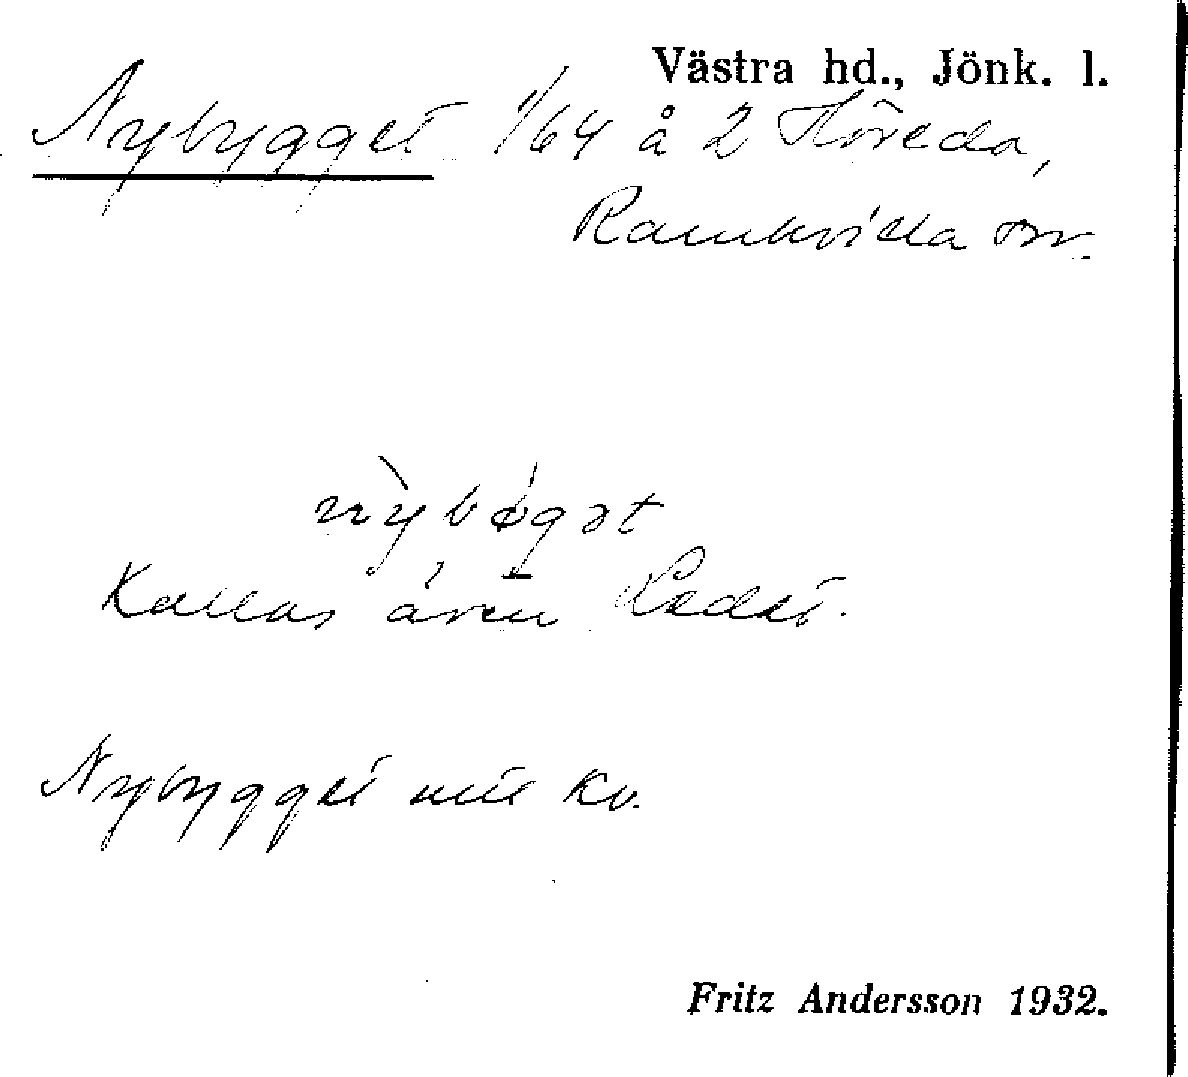 Västra hd., Jönk. l.
Nybygget 1/64 å 2 Höreda,
Ramkvilla sn.
nỳbøgət
Kallas även Ledet.
Nybygget mtl Kv.
Fritz Andersson 1932.